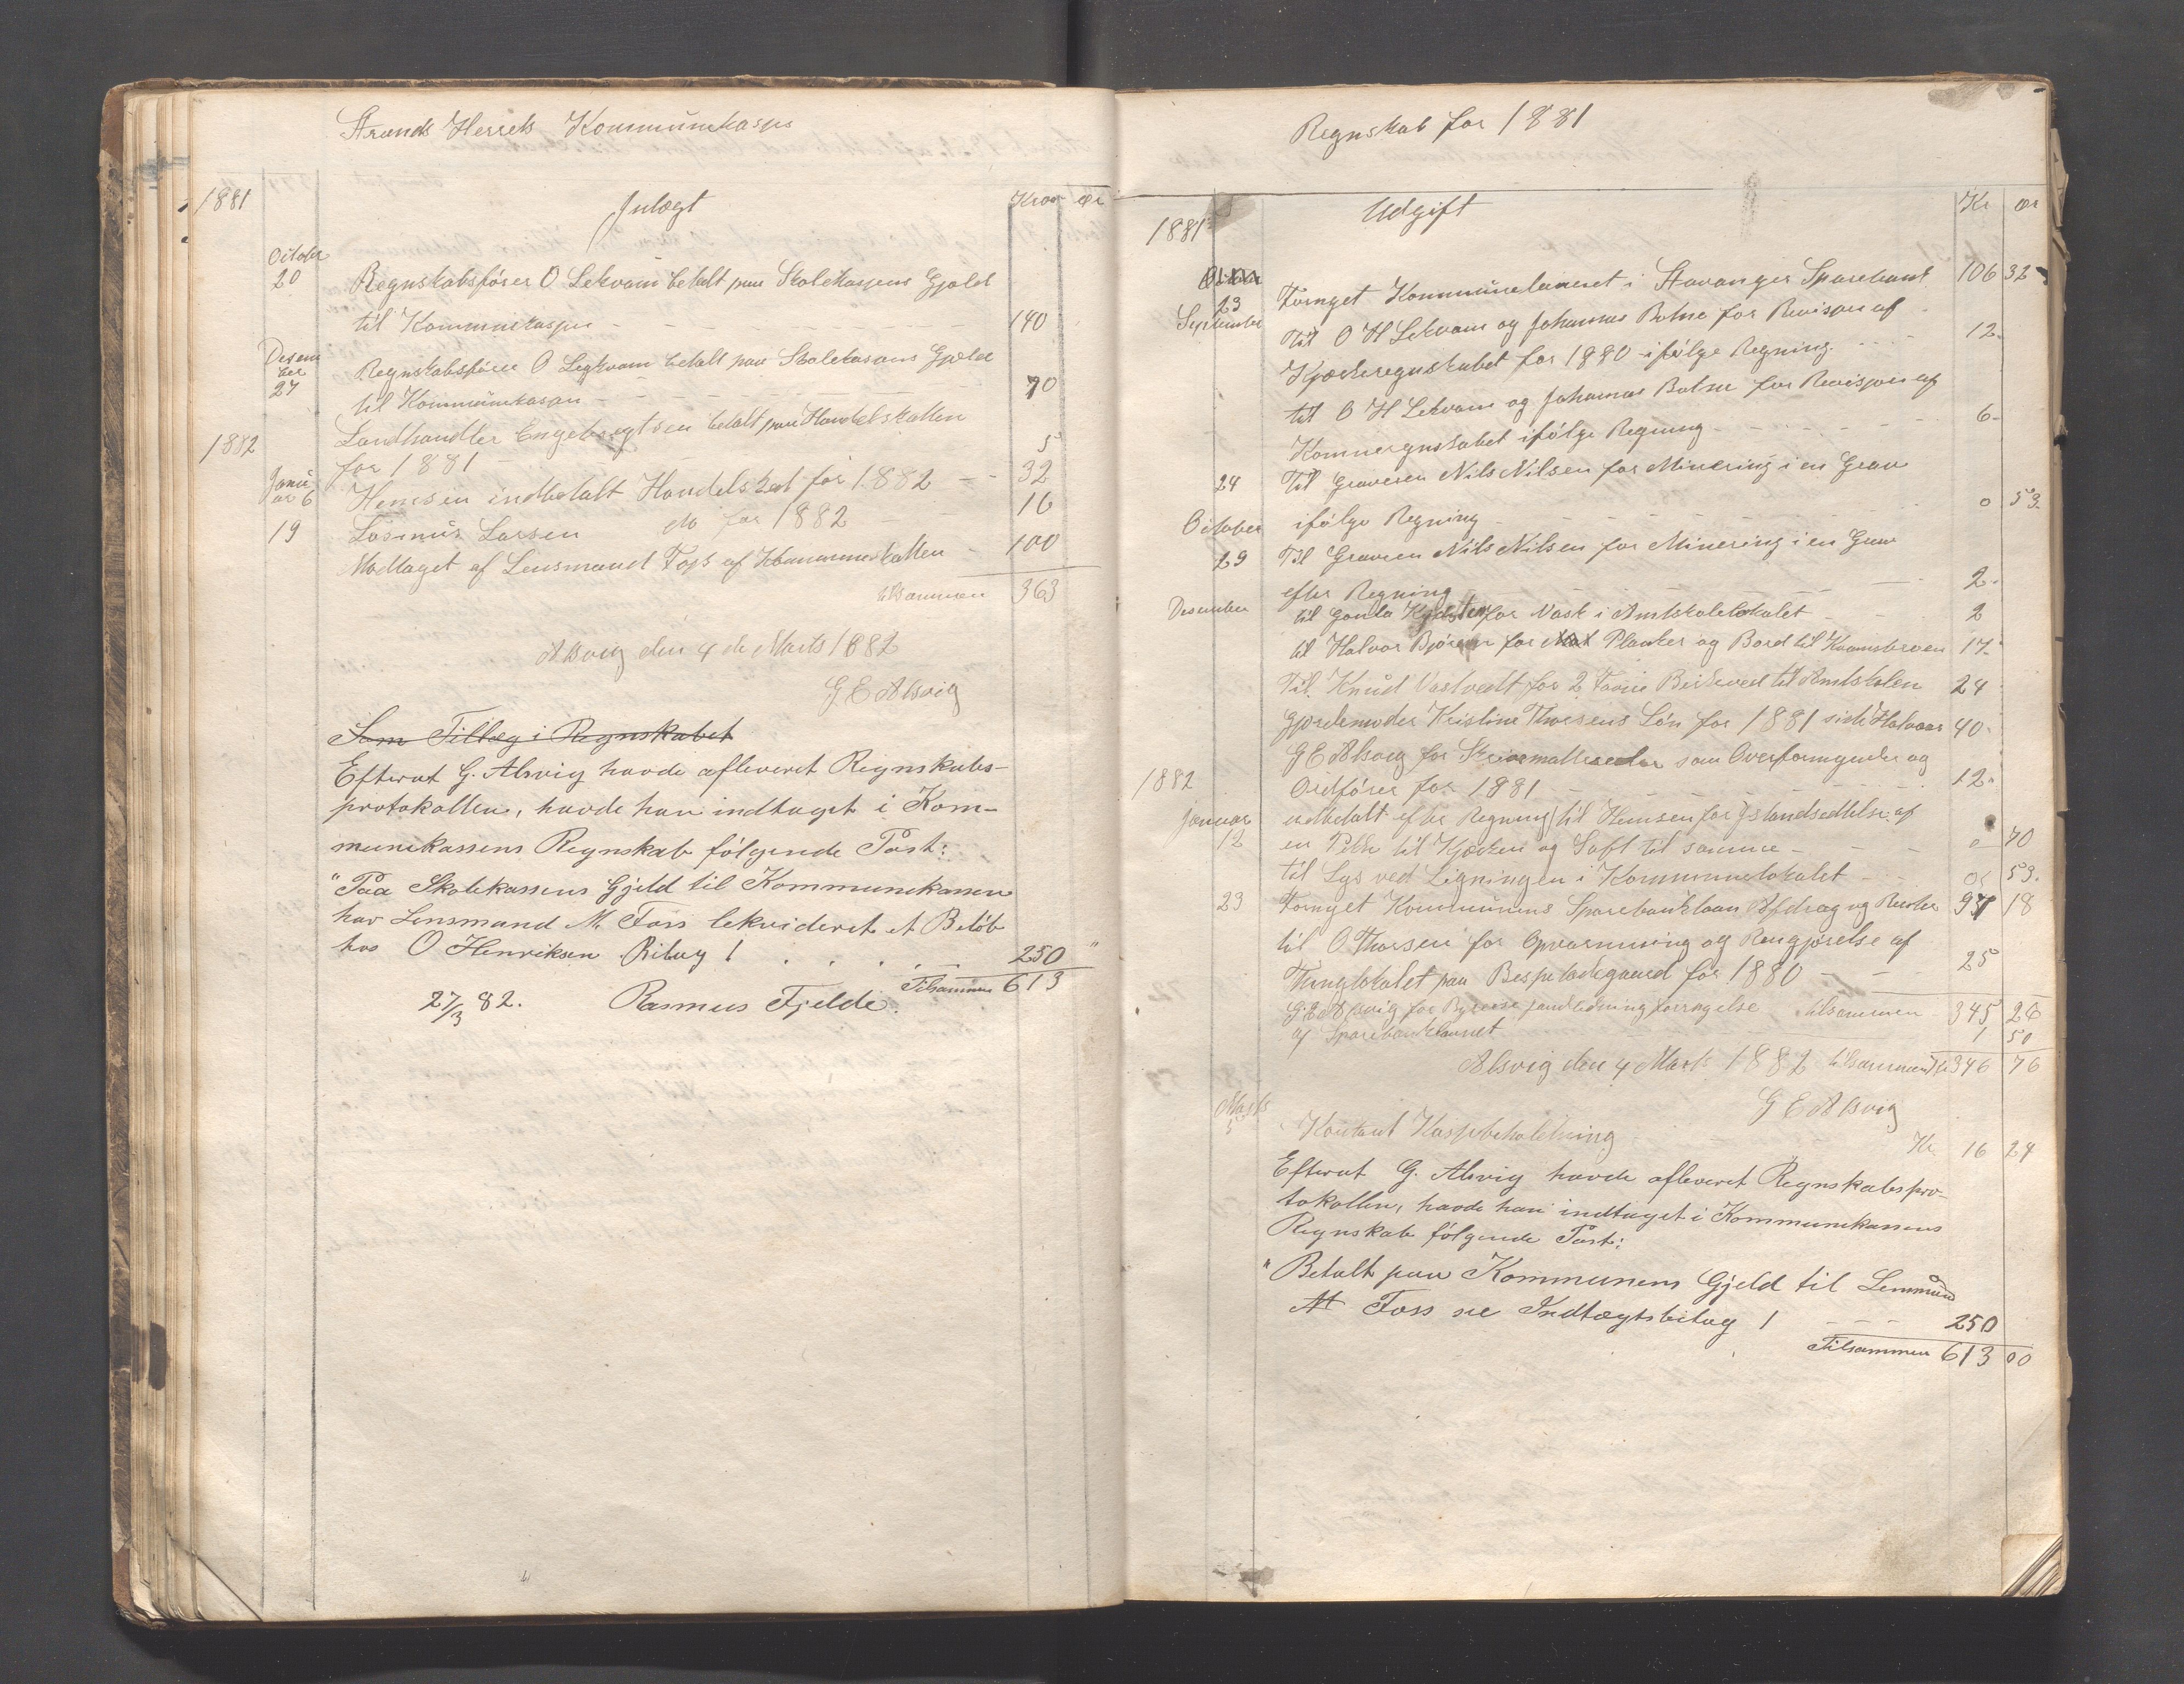 Strands Herreds Kommunekasses
1881
Indtægt
Kron ør
October
20 Regnskabsfører O Lekvam betalt paa Skolekassens Gjæld
til Kommunekassen - - - - 140
Desem
ber
27 Regnskabsfører O Legkvam betalt paa Skolekasens Gjæld
til Kommunekasen - - - - 70
1882
Landhandler Engebregtsen betalt paa Handelskatten
for 1881 5
Janu
ar 6 Hemsen indbetalt Handelskat for 1882 - - 32
19 Rasmus Larsen do for 1882 - - 16
Modtaget af Lensmand Foss af Kommuneskatten - 100
tilsammen 363
Alsvig den 4de Marts 1882
G E Alsvig
Som Tillæg i Regnskabet
Efterat G. Alsvig havde afleveret Regnskabs-
protokollen, havde han indtaget i Kom-
munekassens Regnskab følgende Post:
"Paa Skolekassens Gjeld til Kommunekassen
har Lensmand M. Foss lekvideret et Beløb
hos O Henriksen Bilag 1 . . . . 250 "
Tilsammen 613
27/3 82. Rasmus Fjelde.
Regnskab for 1881
1881
Udgift
Kr ør
September
23 Fornyet Kommunelaanet i Stavanger Sparebank 106 32
Til O H Lekvam og Johannes Botne for Revisjon af
Kjørkeregnskabet for 1880 ifølge Regning. - - - 12-
til O H Lekvam og Johannes Botne for Revisjon af
Komneregnskabet ifølge Regning - - - - 6-
24 Til Graveren Nils Nilsen for Minering i en Grav
ifølge Regning - - - - 0 53.
October
29 Til Graveren Nils Nilsen for Minering i en Grav
efter Regning - - - - 2-
Desember til for Vask i Amtskolelokalet - - 2
til Halvor for Planker og Bord til 17-
Til Knud Vastvedt for 2 Favne Birkeved til Amtskolen 24
Gjordemoder Kristine Thorsens Løn for 1881 sidste Halvaar 40-
G E Alsvig for som Overformynder og
Ordfører for 1881 - - - - 12-
1882
Januar
12 udbetalt efter Regning til Hemsen for Istandsedtelse af
en til Kjørken og til samme - - - 0 70
til Lys ved Ligningen i Kommunelokalet - - 0 53.
23 Fornyet Kommunens Sparebanklaan Afdrag og Renter 97 18
til O Thorsen for Opvarmning og Rengjørelse af
Thinglokalet paa for 1880 - - 25
tilsammen 345 26
G E Alsvig for Byreise i anledning fornyelse
af Sparebanklaanet 1 50
Alsvig den 4 Marts 1882 tilsammen Kr 346 76
G E Alsvig
Marts
5 Kontant Kassebeholdning Kr. 16 24
Efterat G. Alsvig havde afleveret Regnskabspro-
tokollen, havde han indtaget i Kommunekassens
Regnskab følgende Post:
"Betalt paa Kommunens Gjeld til Lensmand
M Foss se Indtægtsbilag 1 - - - 250
Tilsammen 613 00